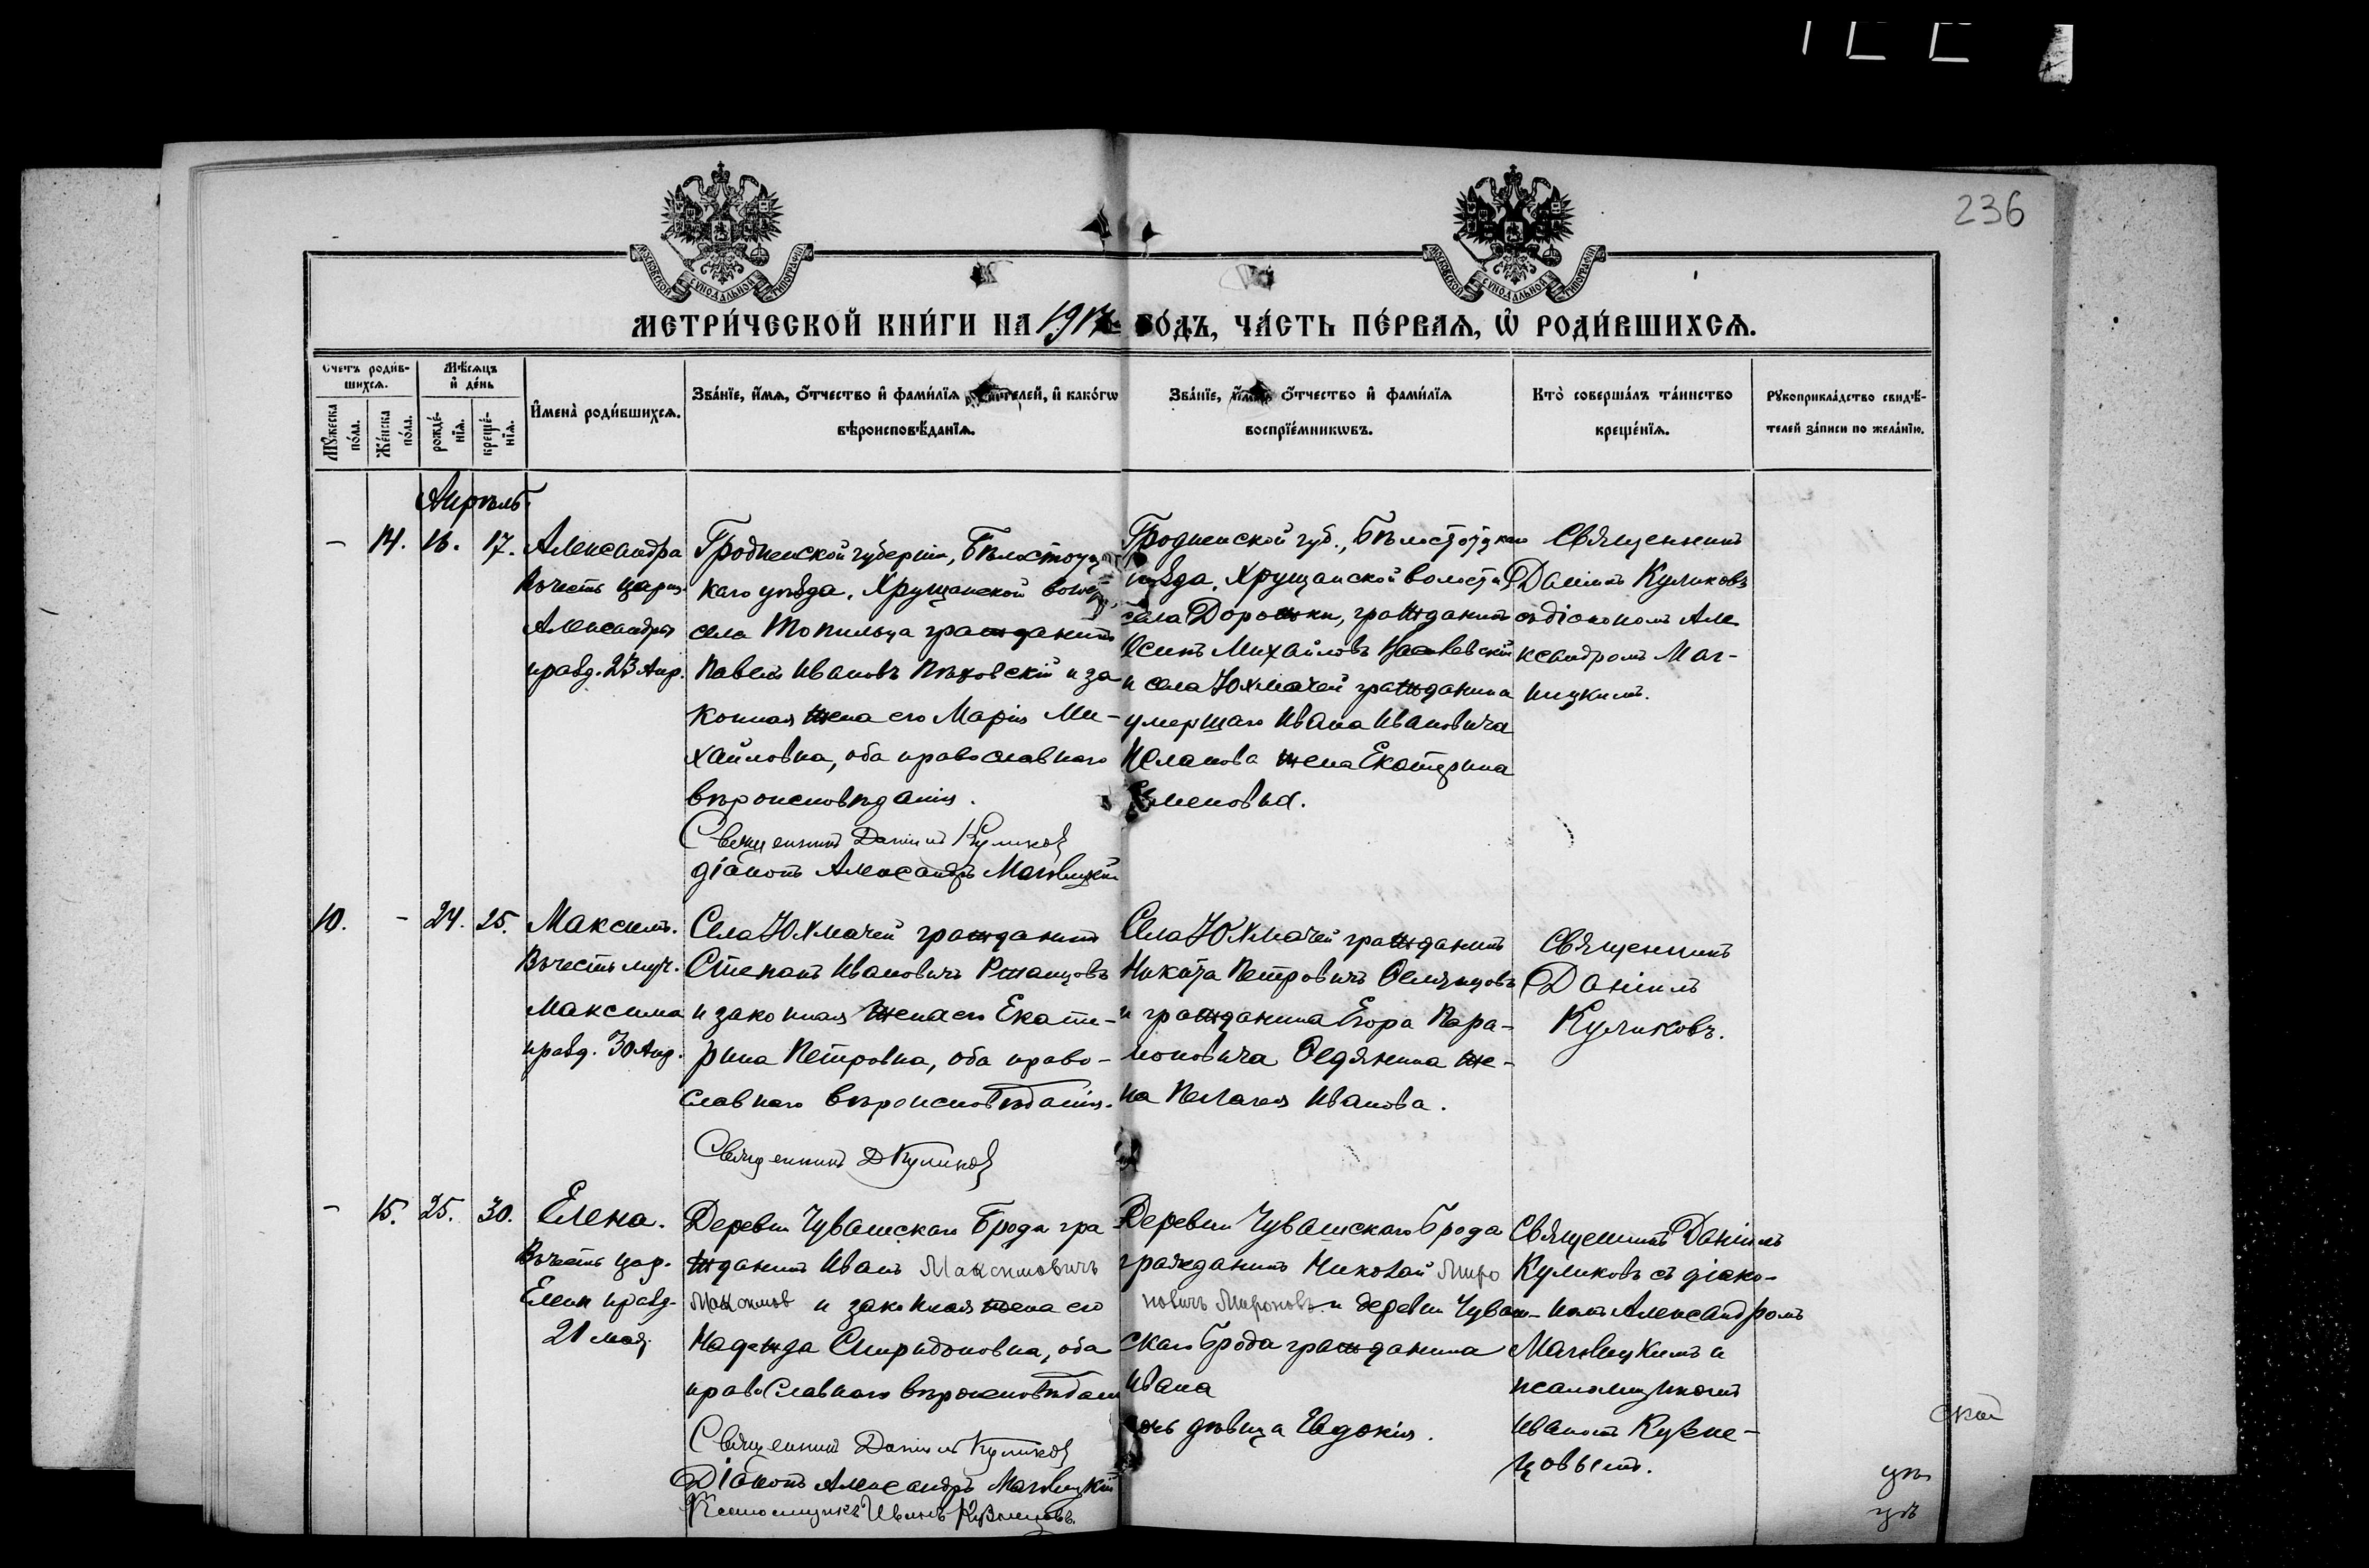 236
МОСКОВСКОЙ СУНОДАЛЬНОЙ ТИПОГРАФІИ
МОСКОВСКОЙ СУНОДАЛЬНОЙ ТИПОГРАФІИ
МЕТРИ́ЧЕСКОЙ КНИ́ГИ НА 1917 ГО́ДЪ, ЧА́СТЬ ПЕ́РВАѦ, Ѡ҆ РОДИ́ВШИХСѦ.
Счетъ роди́в-
шихсѧ.
Мꙋ́жеска по́ла.
Же́нска по́ла.
Мѣ́сѧцъ
и҆ де́нь
рожде́-
нїѧ.
креще́-
нїѧ.
И҆мена̀ роди́вшихсѧ.
Зва́нїе, и҆́мѧ, ѻ҆́тчество и҆ фами́лїѧ роди́телей, и҆ како́гѡ
вѣроисповѣ́данїѧ.
Зва́нїе, и҆́мѧ, ѻ҆́тчество и҆ фами́лїѧ
воспрїе́мникѡвъ.
Кто̀ соверша́лъ та́инство
креще́нїѧ.
Рꙋкоприкла́дство свидѣ́-
телей за́писи по жела́нїю.
Апрѣль.
– 14. 16. 17.
Александра
Въ честь цариц.
Александры
празд. 23 Апр.
Гродненской губерніи, Бѣлостоц
каго уѣзда, Хрущанской
села Топильца гражданинъ
Павелъ Ивановъ и за
конная жена его Марія Ми-
хайловна, оба православнаго
вѣроисповѣданія.
Священникъ Даніилъ Куликовъ
діаконъ Александръ Магницкій
Гродненской губ., Бѣлостоцкаго
уѣзда, Хрущанской волости
села Дорожки, гражданинъ
Осипъ Михайловъ
и села Юхмачей гражданина
умершаго Ивана Ивановича
жена Екатерина
Священникъ
Даніилъ Куликовъ
съ діакономъ Але
ксандромъ Маг-
ницкимъ.
10. – 24. 25.
Максимъ.
Въ честь муч.
Максима
празд. 30 Апр.
Села Юхмачей гражданинъ
Степанъ Ивановичъ
и законная жена его Екате-
рина Петровна, оба право-
славнаго вѣроисповѣданія.
Священникъ Д Куликовъ
Села Юхмачей гражданинъ
Никита Петровичъ
и гражданина Егора Пара-
моновича Седянина же-
на Пелагея Иванова.
Священникъ
Даніилъ
Куликовъ.
– 15. 25. 30.
Елена.
Въ честь цар.
Елены празд.
21 мая.
Деревни Чувашскаго Брода гра-
жданинъ Иванъ Максимовичъ
Максимов и законная жена его
Надежда Спиридоновна, оба
православнаго вѣроисповѣдан
Священникъ Даніилъ Куликовъ
Діаконъ Александръ Магницкій
Псаломщикъ Иванъ Кузнецовъ.
Деревни Чувашскаго Брода
гражданинъ Николай Миро
новичъ Мироновъ и деревни Чуваш-
скаго Брода гражданина
Ивана
дочь дѣвица Евдокія.
Священникъ Даніилъ
Куликовъ съ діако-
номъ Александромъ
Магницкимъ и
псаломщикомъ
Иваномъ Кузне-
цовымъ.
ской